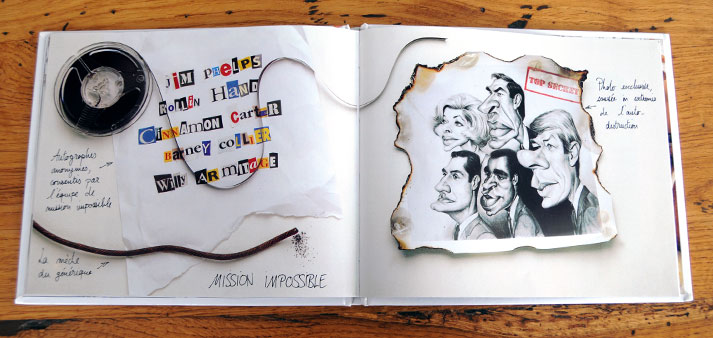 JIM PHELPS
ROLLIN HAND
CINNAMON CARTER
BARNEY COLLIER
WILLY ARMITAGE
Autographes
anonymes,
consentis par
l'équipe de
mission impossible
La mèche
du générique
MISSION IMPOSSIBLE
TOP SECRET
Photo exclusive,
sauvée in extremis
de l'auto-
destruction